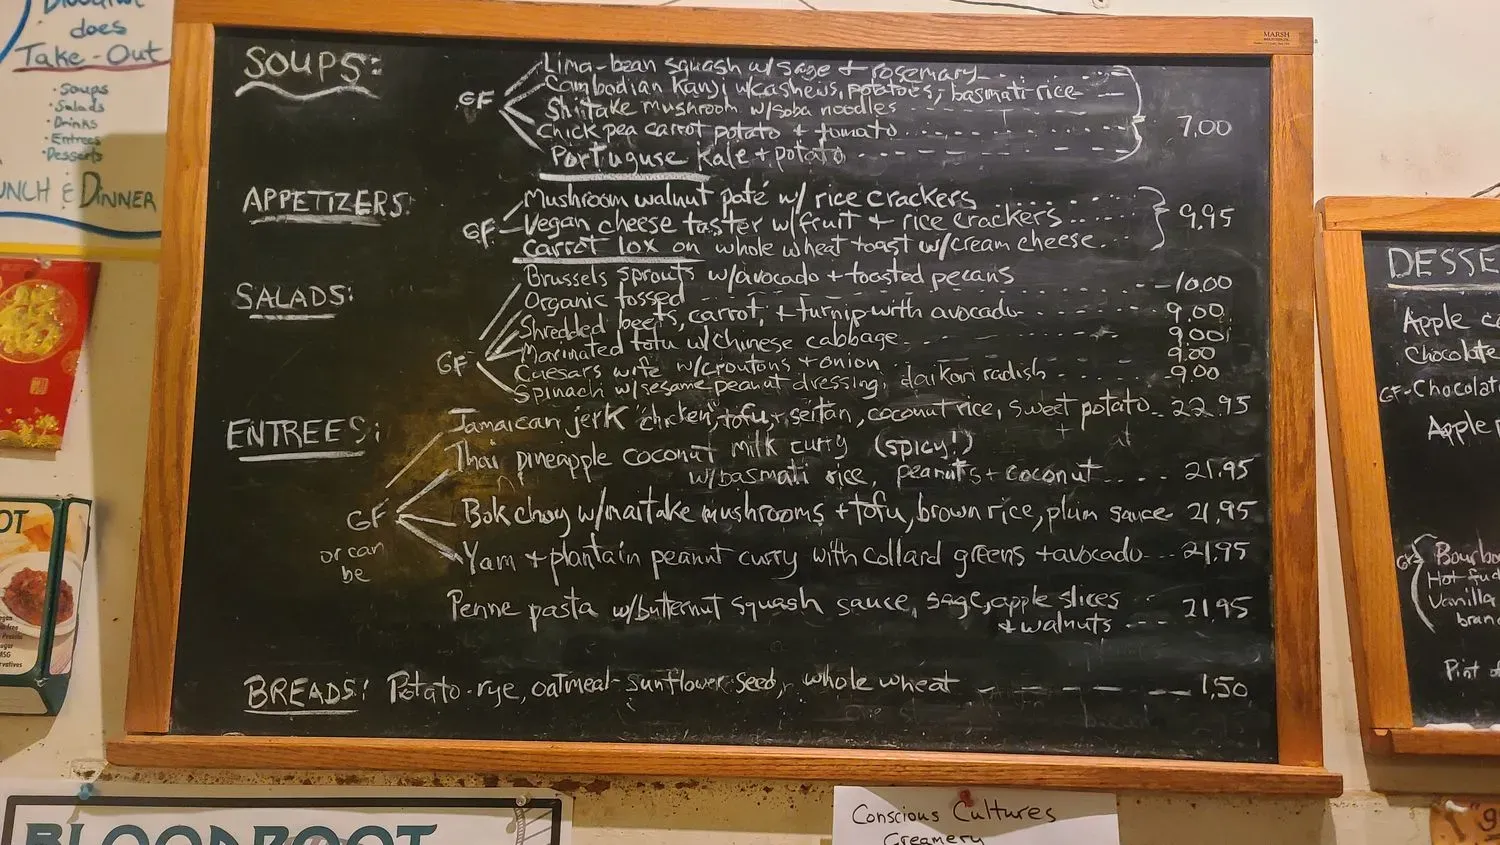 does
Take-Out
• Soups
• Salads
• Drinks
• Entrees
• Desserts
LUNCH & DINNER
MARSH
SOUPS:
GF
Lima-bean squash w/ sage + rosemary
Cambodian Kanji w/cashews, potatoes, basmati rice
Shiitake mushroom w/soba noodles
Chick pea carrot potato + tomato
Portuguse kale + potato
7.00
APPETIZERS:
GF
Mushroom walnut paté w/ rice crackers
Vegan cheese taster w/fruit + rice crackers
Carrot lox on whole wheat toast w/cream cheese
9.95
SALADS:
GF
Brussels sprouts w/avocado + toasted pecans 10.00
Organic tossed 9.00
Shredded beets, carrot, + turnip with avocado 9.00
Marinated tofu w/chinese cabbage 9.00
Caesars wife w/croutons + onion 9.00
Spinach w/sesame peanut dressing, daikon radish
ENTREES:
GF
or can
be
Jamaican jerk "chicken", tofu, + seitan, coconut rice, sweet potato 22.95
Thai pineapple coconut milk curry (spicy!)
w/basmati rice, peanuts + coconut 21.95
Bok choy w/maitake mushrooms + tofu, brown rice, plum sauce 21.95
Yam + plantain peanut curry with collard greens + avocado 21.95
Penne pasta w/butternut squash sauce, sage, apple slices
+ walnuts 21.95
BREADS: Potato-rye, oatmeal-sunflower seed, whole wheat 1.50
BLOODROOT
Conscious Cultures
Creamery
DESSE
Apple c
Chocolate
GF-Chocolat
Apple
GF
Bourbo
Hot fud
Vanilla
bran
Pint o